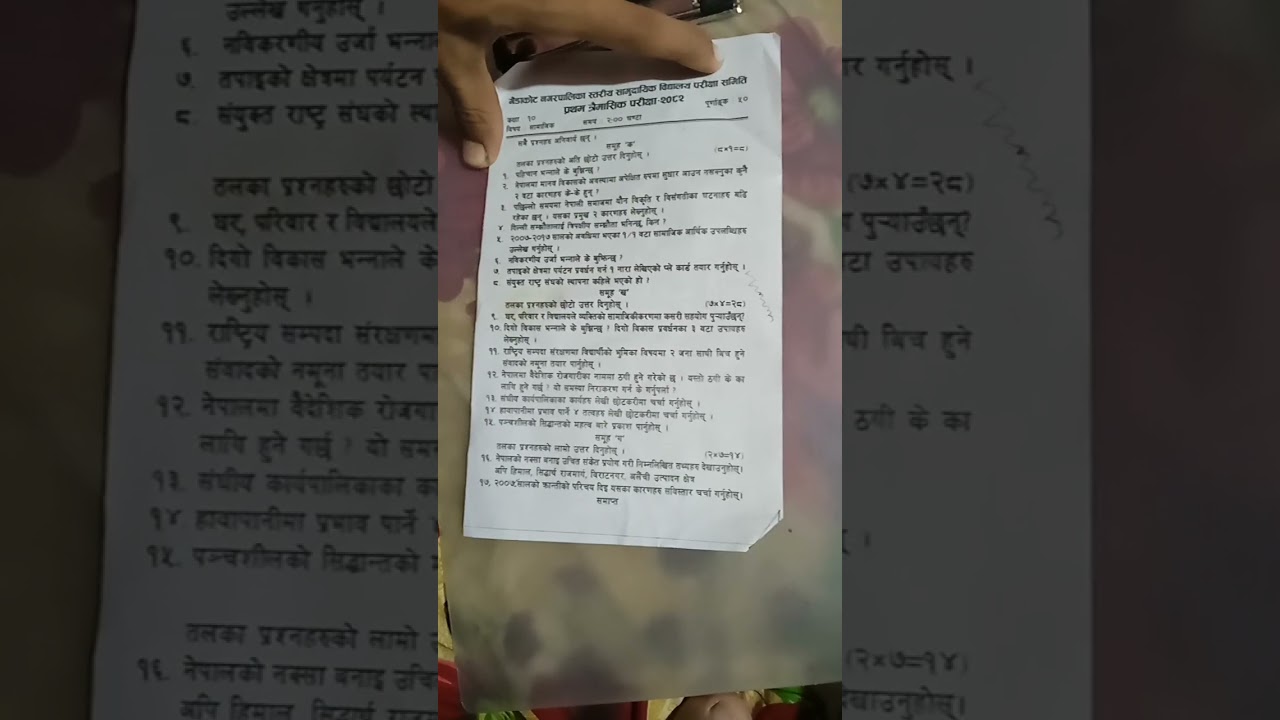 गैंडाकोट नगरपालिका स्तरीय सामुदायिक विद्यालय परीक्षा समिति
प्रथम त्रैमासिक परीक्षा-२०८२
कक्षा १० पूर्णाङ्क ५०
विषय : सामाजिक समय : २:०० घण्टा
सबै प्रश्नहरु अनिवार्य छन् ।
समूह 'क'
तलका प्रश्नहरुको अति छोटो उत्तर दिनुहोस् । (८×१=८)
१. पहिचान भन्नाले के बुझिन्छ ?
२. नेपालमा मानव विकासको अवस्थामा अपेक्षित रुपमा सुधार आउन नसक्नुका कुनै
२ वटा कारणहरु के-के हुन् ?
३. पछिल्लो समयमा नेपाली समाजमा यौन विकृति र विसंगतीका घटनाहरु बढि
रहेका छन् । यसका प्रमुख २ कारणहरु लेख्नुहोस् ।
४. दिल्ली सम्झौतालाई त्रिपक्षीय सम्झौता भनिन्छ, किन ?
५. २००७-२०१७ सालको अवधिमा भएका १/१ वटा सामाजिक आर्थिक उपलब्धिहरु
उल्लेख गर्नुहोस् ।
६. नविकरणीय उर्जा भन्नाले के बुझिन्छ ?
७. तपाइको क्षेत्रमा पर्यटन प्रवर्धन गर्न १ नारा लेखिएको प्ले कार्ड तयार गर्नुहोस् ।
८. संयुक्त राष्ट्र संघको स्थापना कहिले भएको हो ?
समूह 'ख'
तलका प्रश्नहरुको छोटो उत्तर दिनुहोस् । (७×४=२८)
९. घर, परिवार र विद्यालयले व्यक्तिको सामाजिकीकरणमा कसरी सहयोग पुऱ्याउँछन्?
१०. दिगो विकास भन्नाले के बुझिन्छ ? दिगो विकास प्रवर्धनका ३ वटा उपायहरु
लेख्नुहोस् ।
११. राष्ट्रिय सम्पदा संरक्षणमा विद्यार्थीको भुमिका विषयमा २ जना साथी बिच हुने
संवादको नमूना तयार पार्नुहोस् ।
१२. नेपालमा वैदेशिक रोजगारीका नाममा ठगी हुने गरेको छ । यस्तो ठगी के का
लागि हुने गर्छ ? यो समस्या निराकरण गर्न के गर्नुपर्ला ?
१३. संघीय कार्यपालिकाका कार्यहरु लेखी छोटकरीमा चर्चा गर्नुहोस् ।
१४ हावापानीमा प्रभाव पार्ने ४ तत्वहरु लेखी छोटकरीमा चर्चा गर्नुहोस् ।
१५. पञ्चशीलको सिद्धान्तको महत्व बारे प्रकाश पार्नुहोस् ।
समूह 'ग'
तलका प्रश्नहरुको लामो उत्तर दिनुहोस् । (२×७=१४)
१६. नेपालको नक्सा बनाइ उचित संकेत प्रयोग गरी निम्नलिखित तथ्यहरु देखाउनुहोस्।
अपि हिमाल, सिद्धार्थ राजमार्ग, विराटनगर, अलैंची उत्पादन क्षेत्र
१७. २००७ सालको क्रान्तीको परिचय दिइ यसका कारणहरु सविस्तार चर्चा गर्नुहोस्।
समाप्त